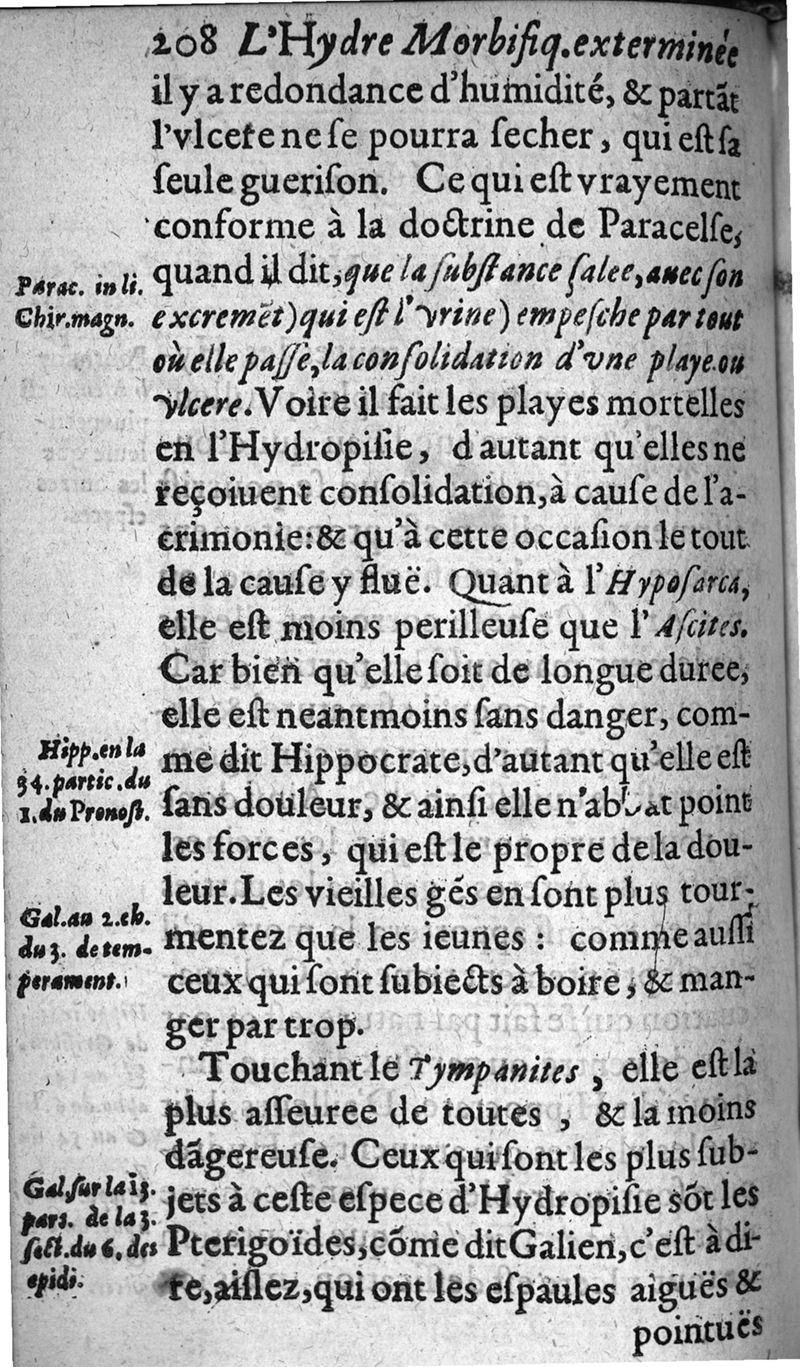 208 L'Hydre Morbifiq. exterminée
il y a redondance d'humidité, & partãt
l'vlcere ne ſe pourra ſecher, qui eſt ſa
ſeule gueriſon. Ce qui eſt vrayement
conforme à la doctrine de Paracelſe,
quand il dit, que la ſubſtance ſalee, auec ſon
Parac. in li.
Chir. magn.
excremẽt) qui eſt l'vrine) empeſche par tout
où elle paſſe, la conſolidation d'vne playe. ou
vlcere. Voire il fait les playes mortelles
en l'Hydropiſie, d'autant qu'elles ne
reçoiuent conſolidation, à cauſe de l'a-
crimonie: & qu'à cette occaſion le tout
de la cauſe y fluë. Quant à l'Hypoſarca,
elle eſt moins perilleuſe que l'Aſcites.
Car bien qu'elle ſoit de longue duree,
elle eſt neantmoins ſans danger, com-
me dit Hippocrate, d'autant qu'elle eſt
Hipp. en la
34. partic. du
1. du Pronoſt.
ſans douleur, & ainſi elle n'abbat point
les forces, qui eſt le propre de la dou-
leur. Les vieilles gés en ſont plus tour-
Gal. au 2. ch.
du 3. de tem-
perament.
mentez que les ieunes : comme auſſi
ceux qui ſont ſubiects à boire, & man-
ger par trop.
Touchant le Tympanites, elle eſt la
plus aſſeuree de toutes, & la moins
dãgereuſe. Ceux qui ſont les plus ſub-
jets à ceſte eſpece d'Hydropiſie sõt les
Gal. ſur la 13.
pars. de la 3.
ſect. du 6. des
epidi.
Pterigoïdes, cõme dit Galien, c'eſt à di-
re, aiſlez, qui ont les eſpaules aiguës &
pointuës